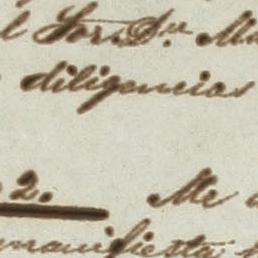 l Sor. Dn
diligencias
2. Me
manifiesta